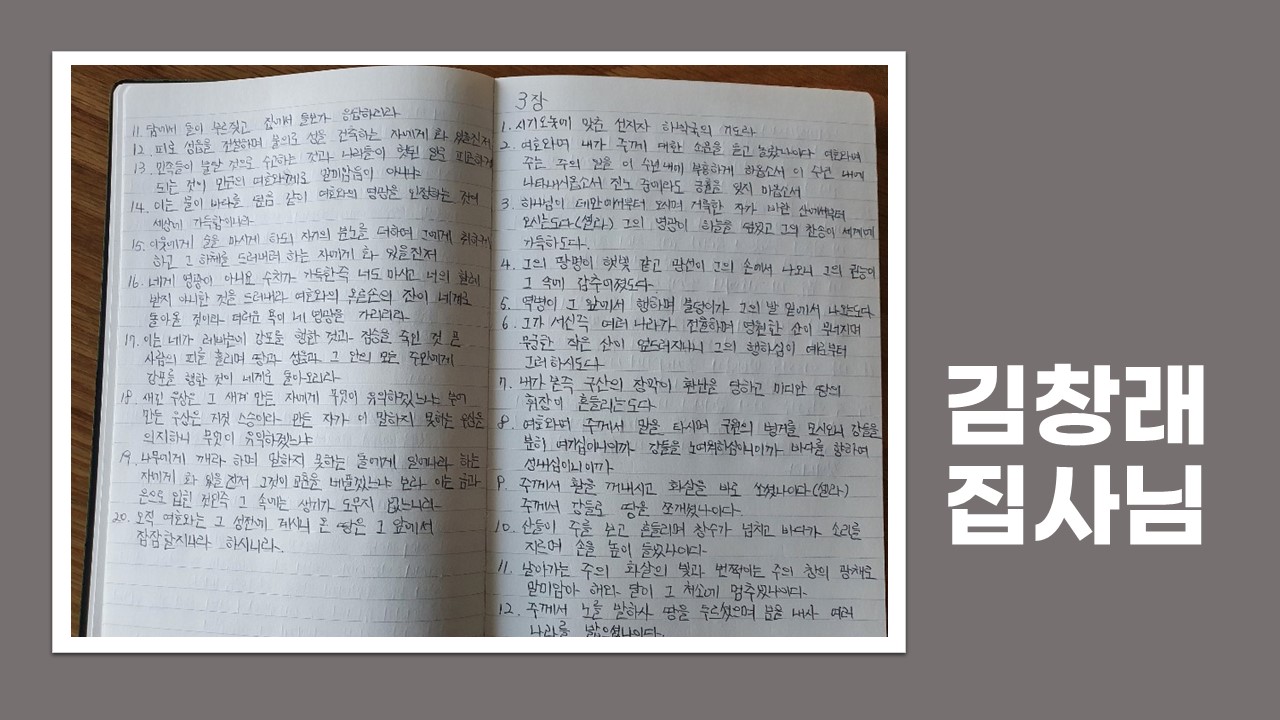 11. 담에서 돌이 부르짖고 집에서 들보가 응답하리라
12. 피로 성읍을 건설하며 불의로 성을 건축하는 자에게 화 있을진저
13. 민족들이 불탈 것으로 수고하는 것과 나라들이 헛된 일로 피곤하게
되는 것이 만군의 여호와께로 말미암음이 아니냐
14. 이는 물이 바다를 덮음 같이 여호와의 영광을 인정하는 것이
세상에 가득함이니라
15. 이웃에게 술을 마시게 하되 자기의 분노를 더하여 그에게 취하게
하고 그 하체를 드러내려 하는 자에게 화 있을진저
16. 네게 영광이 아니요 수치가 가득한즉 너도 마시고 너의 할례
받지 아니한 것을 드러내라 여호와의 오른손의 잔이 네게로
돌아올 것이라 더러운 욕이 네 영광을 가리리라
17. 이는 네가 레바논에 강포를 행한 것과 짐승을 죽인 것 곧
사람의 피를 흘리며 땅과 성읍과 그 안의 모든 주민에게
강포를 행한 것이 네게로 돌아오리라
18. 새긴 우상은 그 새겨 만든 자에게 무엇이 유익하겠느냐 부어
만든 우상은 거짓 스승이라 만든 자가 이 말하지 못하는 우상을
의지하니 무엇이 유익하겠느냐
19. 나무에게 깨라 하며 말하지 못하는 돌에게 일어나라 하는
자에게 화 있을진저 그것이 교훈을 베풀겠느냐 보라 이는 금과
은으로 입힌 것인즉 그 속에는 생기가 도무지 없느니라
20. 오직 여호와는 그 성전에 계시니 온 땅은 그 앞에서
잠잠할지니라 하시니라.
3장
1. 시기오놋에 맞춘 선지자 하박국의 기도라
2. 여호와여 내가 주께 대한 소문을 듣고 놀랐나이다 여호와여
주는 주의 일을 이 수년 내에 부흥하게 하옵소서 이 수년 내에
나타내시옵소서 진노 중에라도 긍휼을 잊지 마옵소서
3. 하나님이 데만에서부터 오시며 거룩한 자가 바란 산에서부터
오시는도다(셀라) 그의 영광이 하늘을 덮었고 그의 찬송이 세계에
가득하도다.
4. 그의 광명이 햇빛 같고 광선이 그의 손에서 나오니 그의 권능이
그 속에 감추어졌도다.
5. 역병이 그 앞에서 행하며 불덩이가 그의 발 밑에서 나오는도다
6. 그가 서신즉 여러 나라가 전율하며 영원한 산이 무너지며
무궁한 작은 산이 엎드러지나니 그의 행하심이 예로부터
그러하시도다
7. 내가 본즉 구산의 장막이 환난을 당하고 미디안 땅의
휘장이 흔들리는도다
8. 여호와여 주께서 말을 타시며 구원의 병거를 모시오니 강들을
분히 여기심이니이까 강들을 노여워하심이니이까 바다를 향하여
성내심이니이까
9. 주께서 활을 꺼내시고 화살을 바로 쏘셨나이다(셀라)
주께서 강들로 땅을 쪼개셨나이다.
10. 산들이 주를 보고 흔들리며 창수가 넘치고 바다가 소리를
지르며 손을 높이 들었나이다
11. 날아가는 주의 화살의 빛과 번쩍이는 주의 창의 광채로
말미암아 해와 달이 그 처소에 멈추었나이다.
12. 주께서 노를 발하사 땅을 두르셨으며 분을 내사 여러
나라를 밟으셨나이다.
김창래
집사님